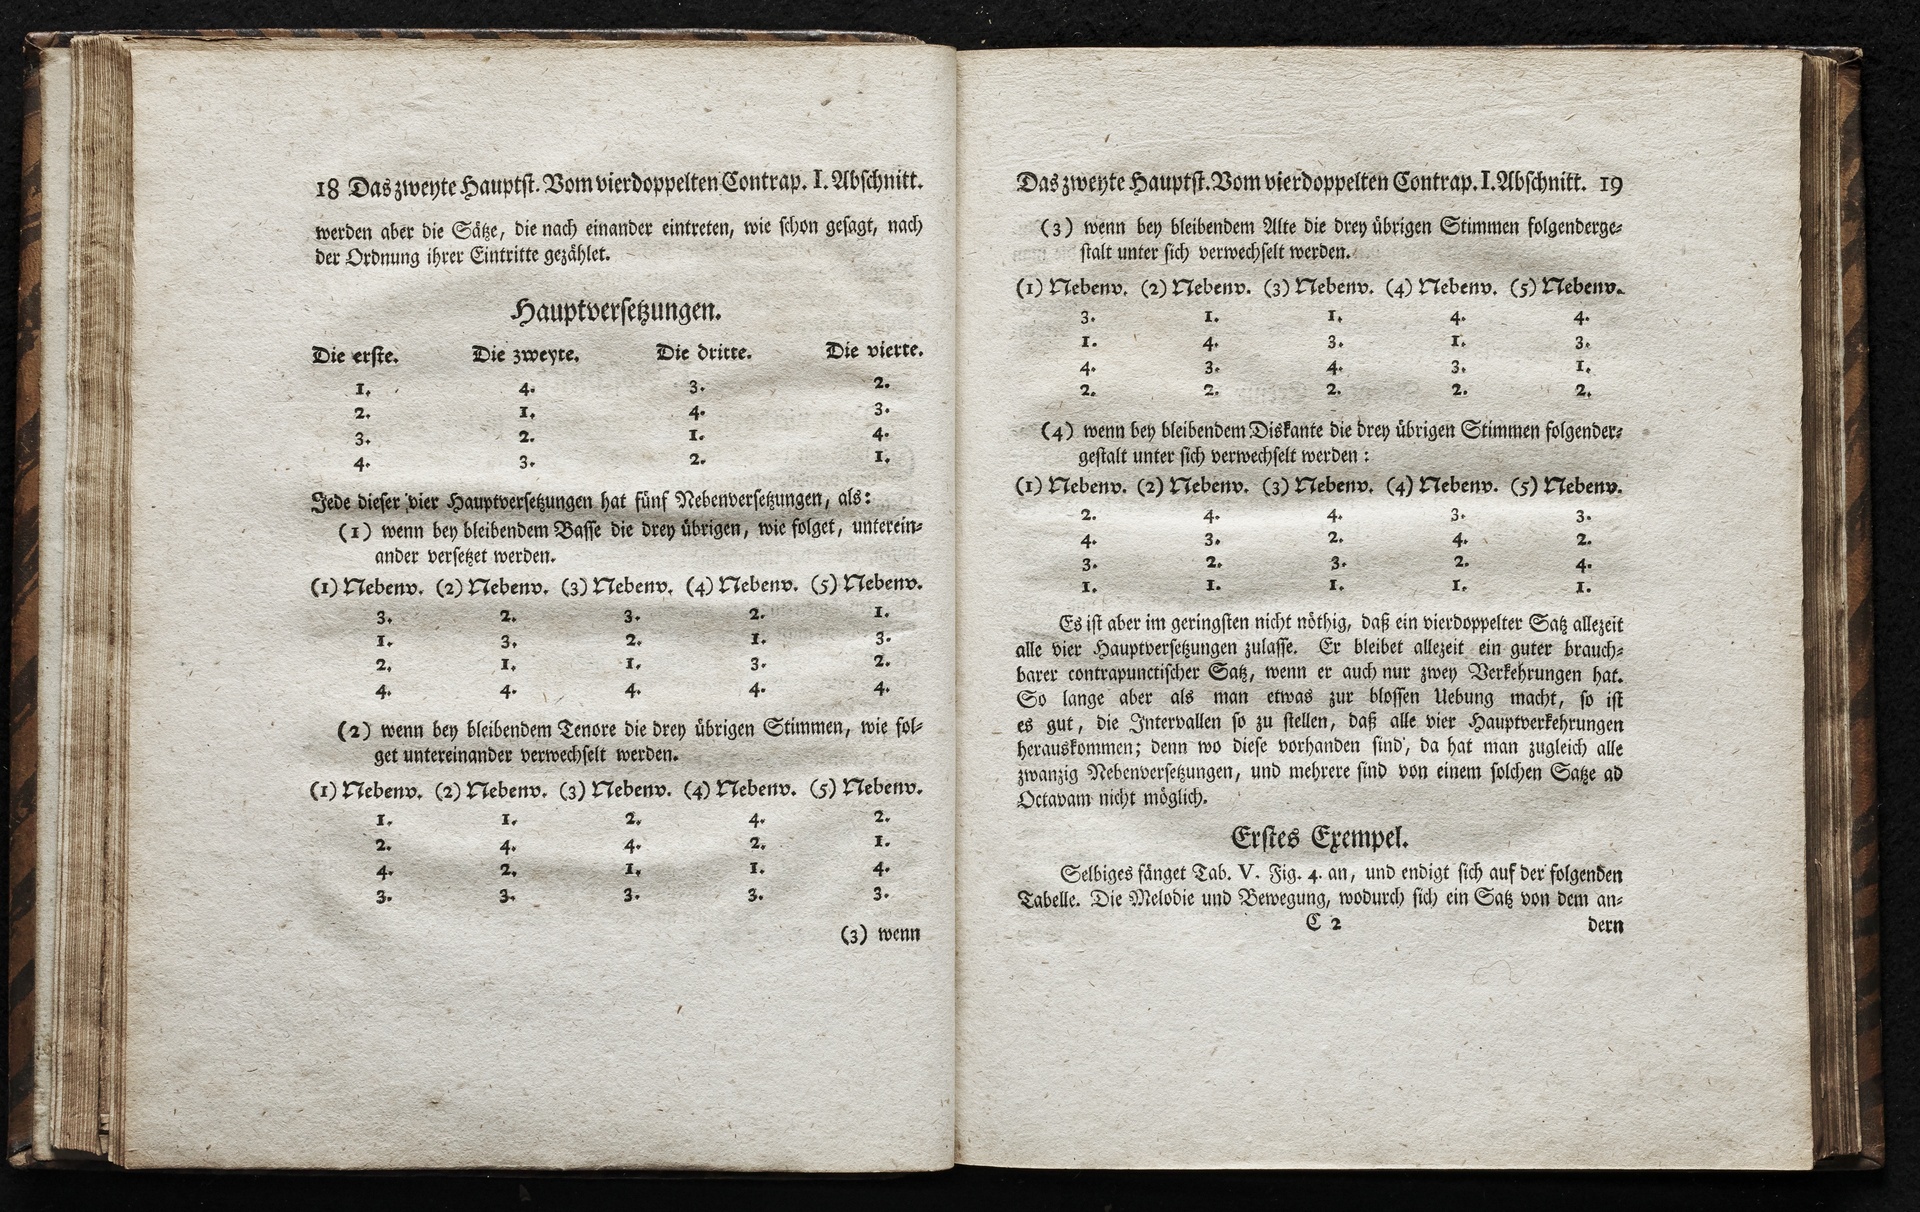 18 Das zweyte Hauptst. Vom vierdoppelten Contrap. I. Abschnitt.
werden aber die Sätze, die nach einander eintreten, wie schon gesagt, nach
der Ordnung ihrer Eintritte gezählet.
Hauptversetzungen.
Die erste. Die zweyte. Die dritte. Die vierte.
1. 4. 3. 2.
2. 1. 4. 3.
3. 2. 1. 4.
4. 3. 2. 1.
Jede dieser vier Hauptversetzungen hat fünf Nebenversetzungen, als:
(1) wenn bey bleibendem Basse die drey übrigen, wie folget, unterein-
ander versetzet werden.
(1) Nebenv. (2) Nebenv. (3) Nebenv. (4) Nebenv. (5) Nebenv.
3. 2. 3. 2. 1.
1. 3. 2. 1. 3.
2. 1. 1. 3. 2.
4. 4. 4. 4. 4.
(2) wenn bey bleibendem Tenore die drey übrigen Stimmen, wie fol-
get untereinander verwechselt werden.
(1) Nebenv. (2) Nebenv. (3) Nebenv. (4) Nebenv. (5) Nebenv.
1. 1. 2. 4. 2.
2. 4. 4. 2. 1.
4. 2. 1. 1. 4.
3. 3. 3. 3. 3.
(3) wenn
Das zweyte Hauptst. Vom vierdoppelten Contrap. I. Abschnitt. 19
(3) wenn bey bleibendem Alte die drey übrigen Stimmen folgenderge-
stalt unter sich verwechselt werden.
(1) Nebenv. (2) Nebenv. (3) Nebenv. (4) Nebenv. (5) Nebenv.
3. 1. 1. 4. 4.
1. 4. 3. 1. 3.
4. 3. 4. 3. 1.
2. 2. 2. 2. 2.
(4) wenn bey bleibendem Diskante die drey übrigen Stimmen folgender-
gestalt unter sich verwechselt werden:
(1) Nebenv. (2) Nebenv. (3) Nebenv. (4) Nebenv. (5) Nebenv.
2. 4. 4. 3. 3.
4. 3. 2. 4. 2.
3. 2. 3. 2. 4.
1. 1. 1. 1. 1.
Es ist aber im geringsten nicht nöthig, daß ein vierdoppelter Satz allezeit
alle vier Hauptversetzungen zulasse. Er bleibet allezeit ein guter brauch-
barer contrapunctischer Satz, wenn er auch nur zwey Verkehrungen hat.
So lange aber als man etwas zur blossen Uebung macht, so ist
es gut, die Intervallen so zu stellen, daß alle vier Hauptverkehrungen
herauskommen; denn wo diese vorhanden sind, da hat man zugleich alle
zwanzig Nebenversetzungen, und mehrere sind von einem solchen Satze ad
Octavam nicht möglich.
Erstes Exempel.
Selbiges fänget Tab. V. Fig. 4. an, und endigt sich auf der folgenden
Tabelle. Die Melodie und Bewegung, wodurch sich ein Satz von dem an-
C 2 dern